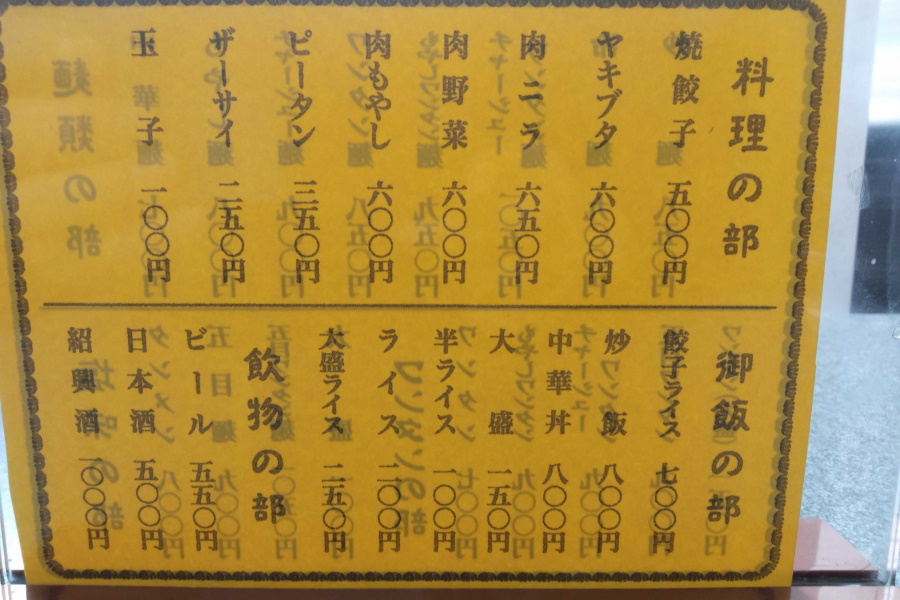 料理の部
焼餃子 五〇〇円
ヤキブタ 六〇〇円
肉ニラ 六五〇円
肉野菜 六〇〇円
肉もやし 六〇〇円
ピータン 三五〇円
ザーサイ 二五〇円
玉子 一〇〇円
御飯の部
餃子ライス 七〇〇円
炒飯 八〇〇円
中華丼 八〇〇円
大盛 一五〇円
半ライス 一〇〇円
ライス 二〇〇円
大盛ライス 二五〇円
飲物の部
ビール 五五〇円
日本酒 五〇〇円
紹興酒 一〇〇〇円